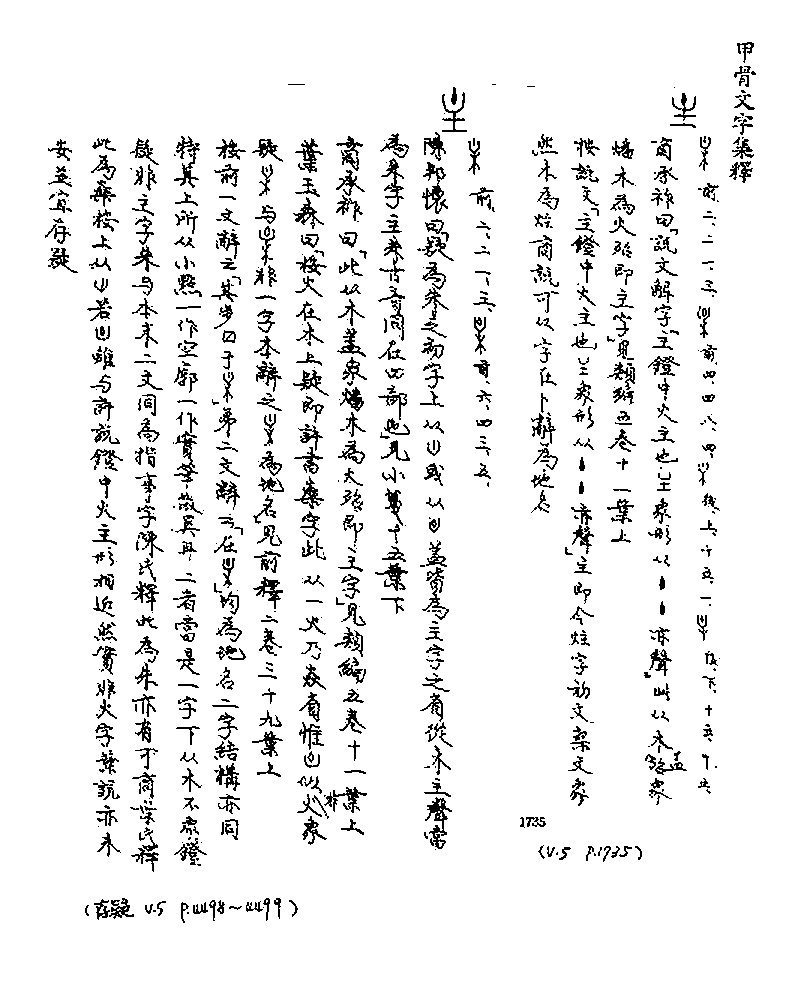 甲骨文字集釋
前、二、二一、三、前、四、四八、四、後上、十五、一、後、下、十五、十六
商承祚曰「說文解字『主鐙中火主也 象形从丨丨亦聲』此从木蓋象
燔木為火殆即主字」見類編五卷十一葉上
按說文「主鐙中火主也 象形从丨丨亦聲」主即今炷字初文栔文象
然木為炷商說可从字在卜辭為地名
1735
(V.5 P.1735)
前、六、二一、三、前、六、四三、五、
陳邦懷曰「疑為朱之初字上从 或从 蓋皆為主字之省从木主聲當
為朱字主朱古音同在四部也」見小箋十五葉下
商承祚曰「此从木蓋象燔木為火殆即主字」見類編五卷十一葉上
葉玉森曰「按火在木上疑即許書 字此 从一火乃 省惟 似 火象
疑 與 非一字本辭之 為地名」見前釋二卷三十九葉上
按前一文辭云「其步 于 」第二文辭云「在 」均為地名二字結構亦同
特其上所从小點一作空廓一作實筆微異耳二者當是一字下从木不象鐙
疑非主字朱與本末二文同為指事字陳氏釋此為朱亦有可商葉氏釋
此為 按上从 若 雖與許說鐙中火主形相近然實非火字葉說亦未
安並宜存疑
(存疑 V.5 P.4498~4499)